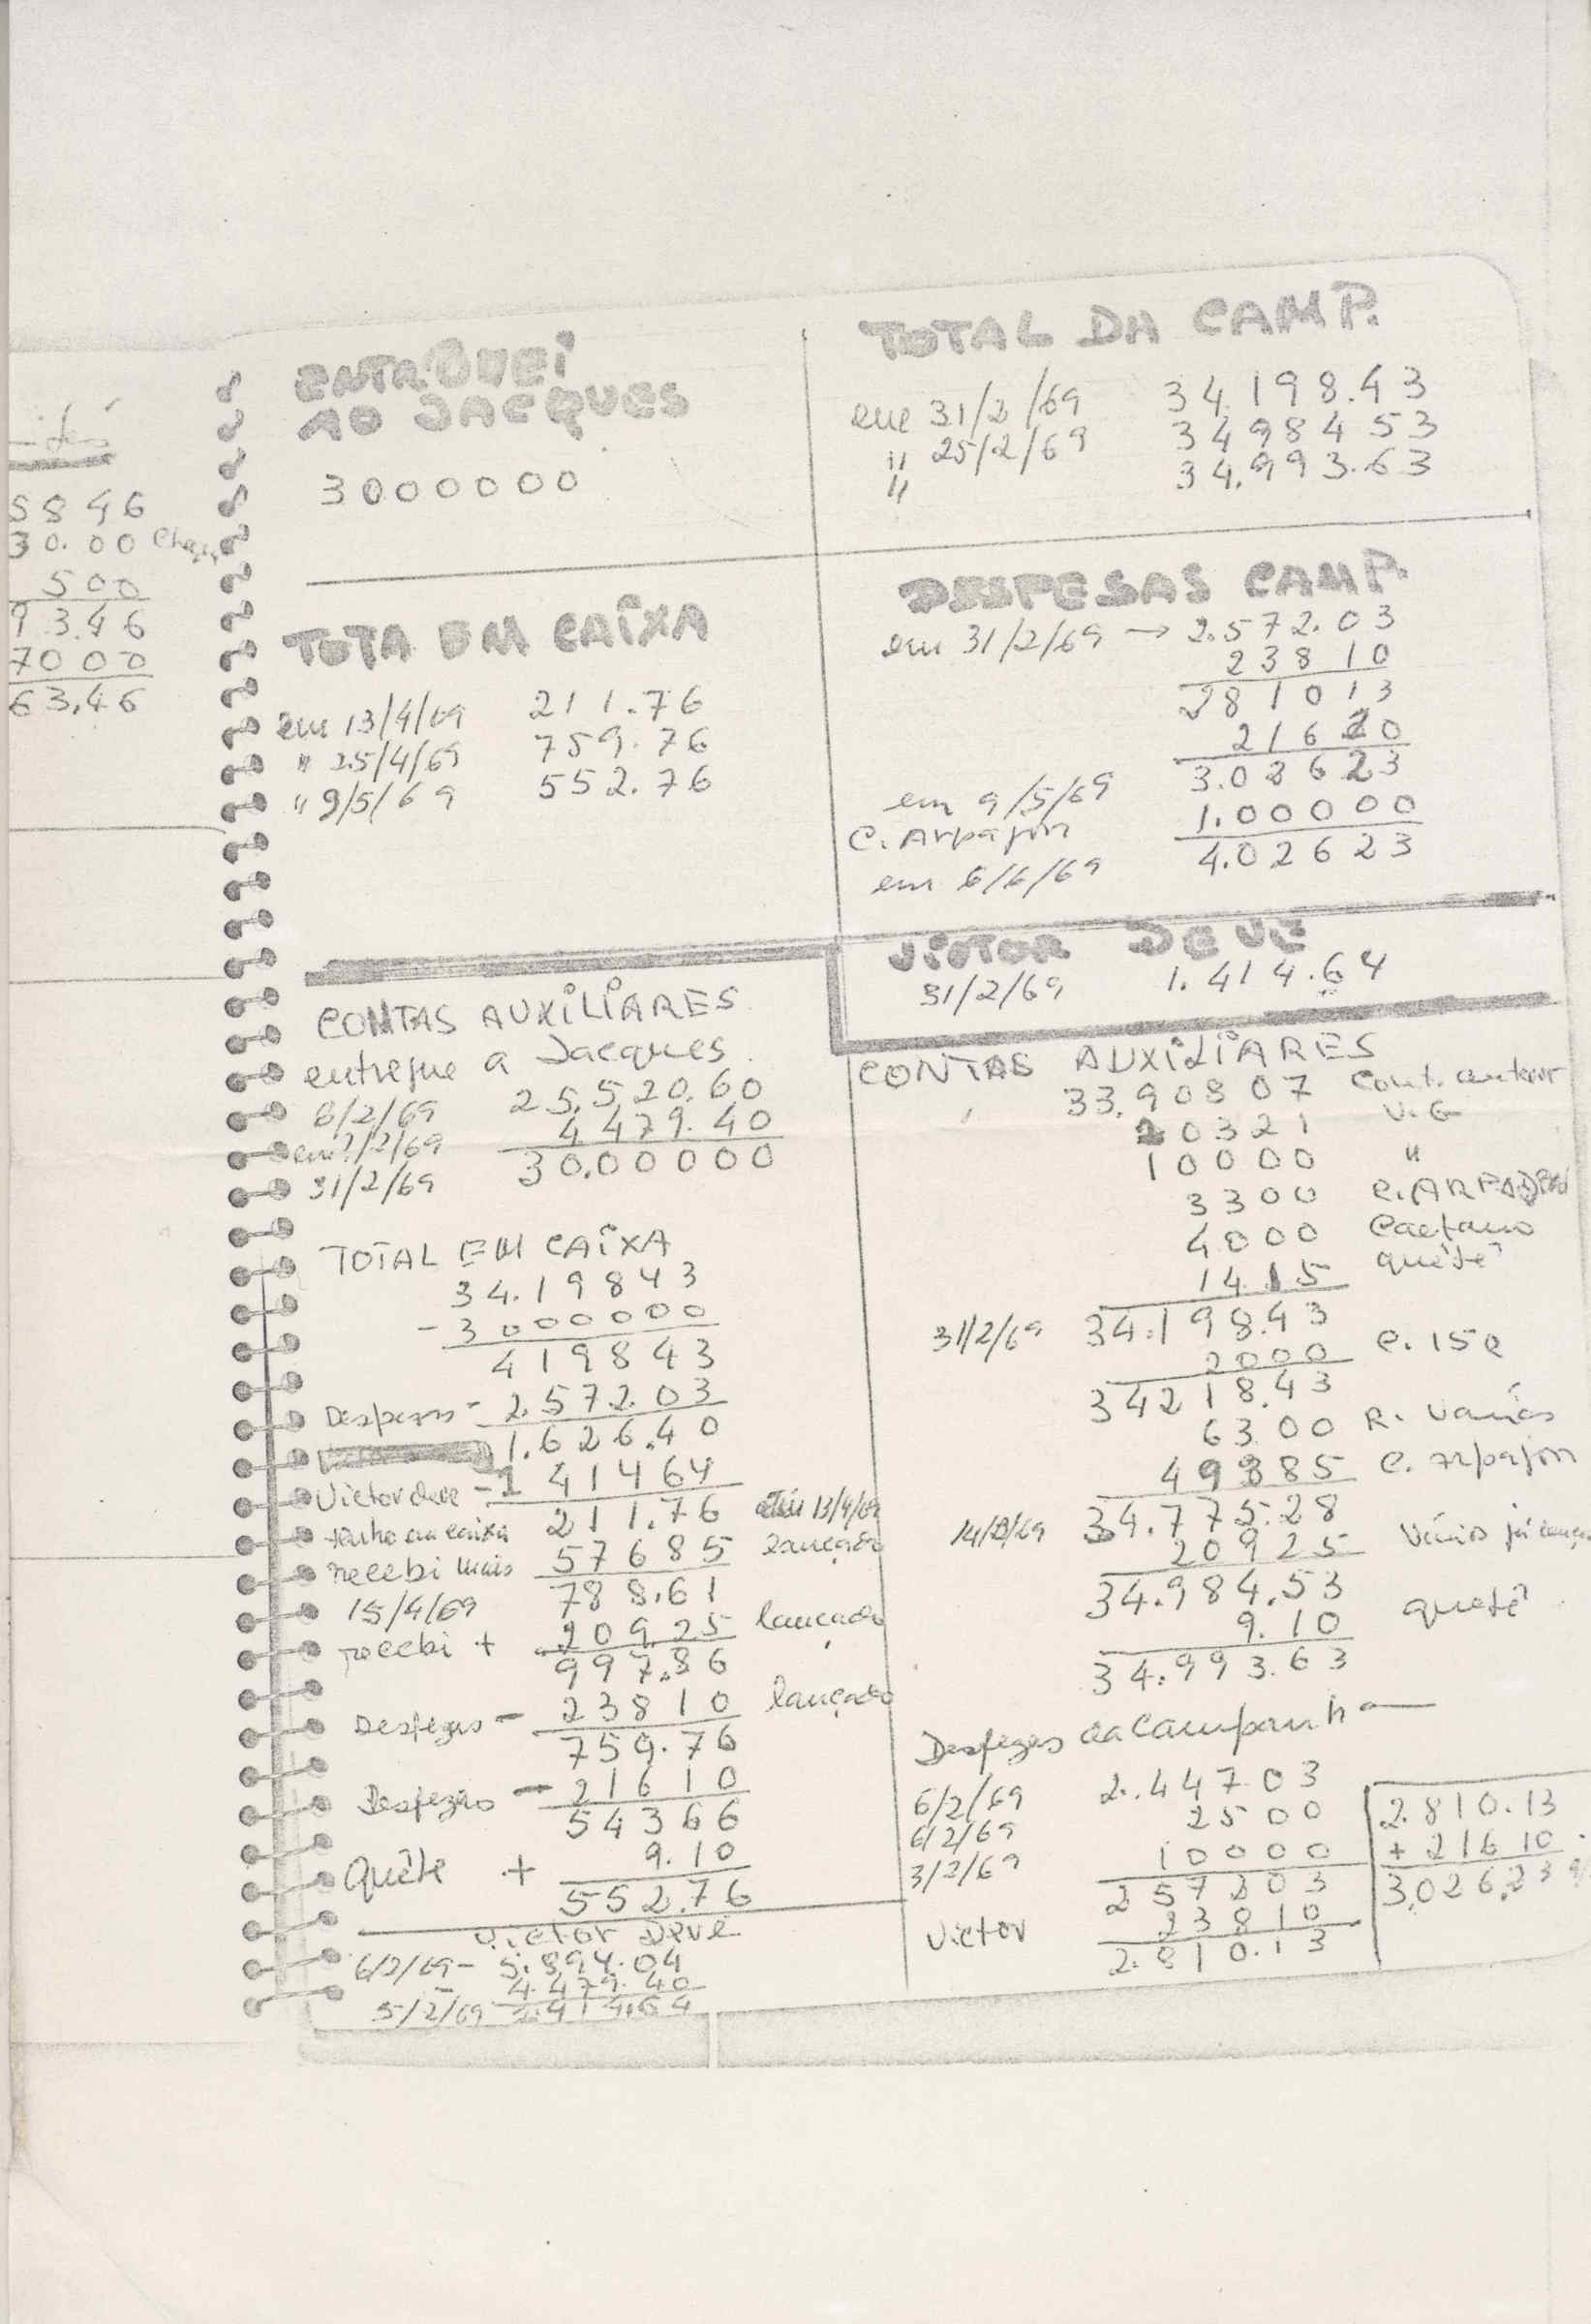 5846
30.00
500
9346
7000
63,46
ENTREGUEI
AO JACQUES
3000000
TOTAL DA CAMP.
em 31/2/69 34.198.43
" 25/2/69 3498453
" 34.993.63
TOTA EM CAIXA
em 13/4/69 211.76
" 25/4/69 759.76
" 9/5/69 552.76
DESPESAS CAMP.
em 31/2/69 → 2.572.03
23810
281013
21620
em 9/5/69 3.02623
C. Arpajon 1.00000
em 6/6/69 4.02623
VICTOR DEVE
31/2/69 1.414.64
CONTAS AUXILIARES
entregue a Jacques
6/2/69 25.520.60
em 7/2/69 4479.40
31/2/69 30.00000
TOTAL EM CAIXA
34.19843
- 3000000
419843
Despezas - 2.572.03
1.626.40
Victor deve - 141464
tenho em caixa 211.76 até 13/4/69
recebi mais 57685 lançado
15/4/69 788.61
recebi + 20925 lançado
997.86
Despezas - 23810 lançado
759.76
Despezas - 21610
54366
Quête + 9.10
552.76
Victor Deve
6/2/69 - 5.894.04
- 4.479.40
5/2/69 1.414.64
CONTAS AUXILIARES
33.90807 Cont. anterior
20321 V.G
10000 "
3300 C. ARPAJON
4000 Caetano
1415 quête
31/2/69 34.198.43
2000 C. 15e
34218.43
6300 R. Varias
49385 C. Arpajon
14/2/69 34.775.28
20925 Vários já
34.984.53
9.10 quete
34.993.63
Despezas da Campanha
6/2/69 2.44703
6/2/69 2500
3/2/69 10000
257203
Victor 23810
2.810.13
2.810.13
+ 21610
3.026.23